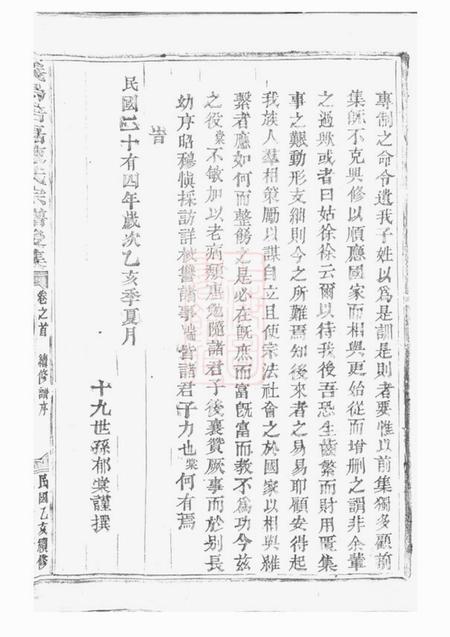 專制之命令遺我子姓以為是訓是則者要惟以前集獨多顧前
集師不克與修以順應國家而相與更始從而增刪之謂非余輩
之過歟或者曰姑徐徐云爾以待我後吾恐生齒繁而財用匱集
事之艱動形支絀則今之所難焉知後來者之易易耶顧安得起
我族人羣相策勵以謀自立且使宗法社會之於國家以相與維
繫者應如何而整飭之是必在既庶而富既富而教不為功今茲
之役棠不敏加以老病頹唐勉隨諸君子後襄贊厥事而於別長
幼序昭穆慎採訪詳校讐諸事端皆諸君子力也棠何有焉
旹
民國二十有四年歲次乙亥季夏月
十九世孫郁棠謹撰
宗譜
集
卷之首
續修譜序
民國乙亥續修